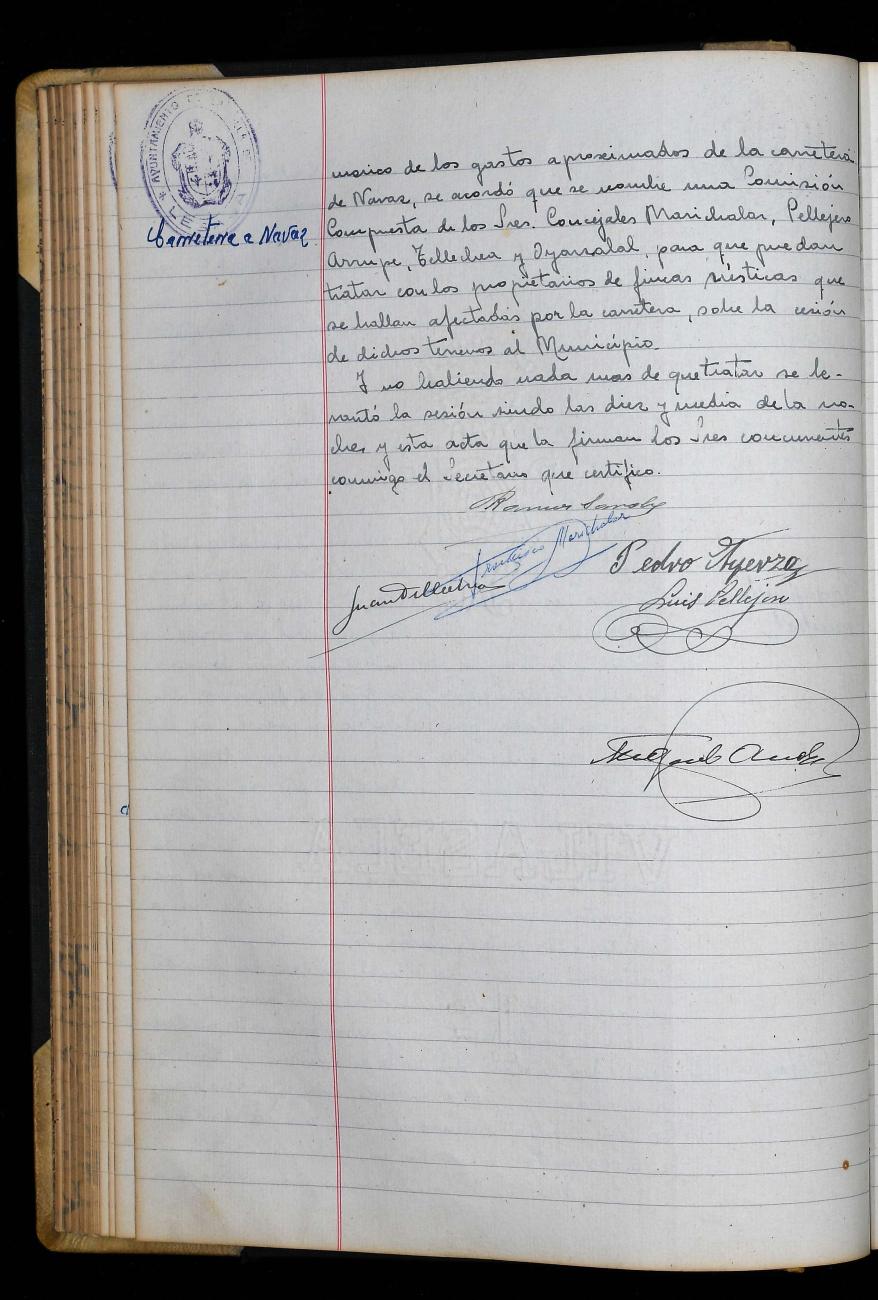 AYUNTAMIENTO DE LA
LE
Carretera a Navaz
marico de los gastos aproximados de la carretera
de Navaz, se acordó que se nombre una Comisión
Compuesta de los Sres. Concejales Marichalar, Pellejero
Arrupe, Tellechea y Oyarzabal, para que puedan
tratar con los propietarios de fincas rústicas que
se hallan afectadas por la carretera, sobre la cesión
de dichos terrenos al Município.
Y no habiendo nada mas de que tratar se le-
vantó la sesión siendo las diez y media de la no-
che, y esta acta que la firman los Sres concurrentes
conmigo el Secretario que certifico.
Ramon
Francisco Marichalar
Pedro Ayerza
Juan Tellechea
Luis Pellejero
Miguel